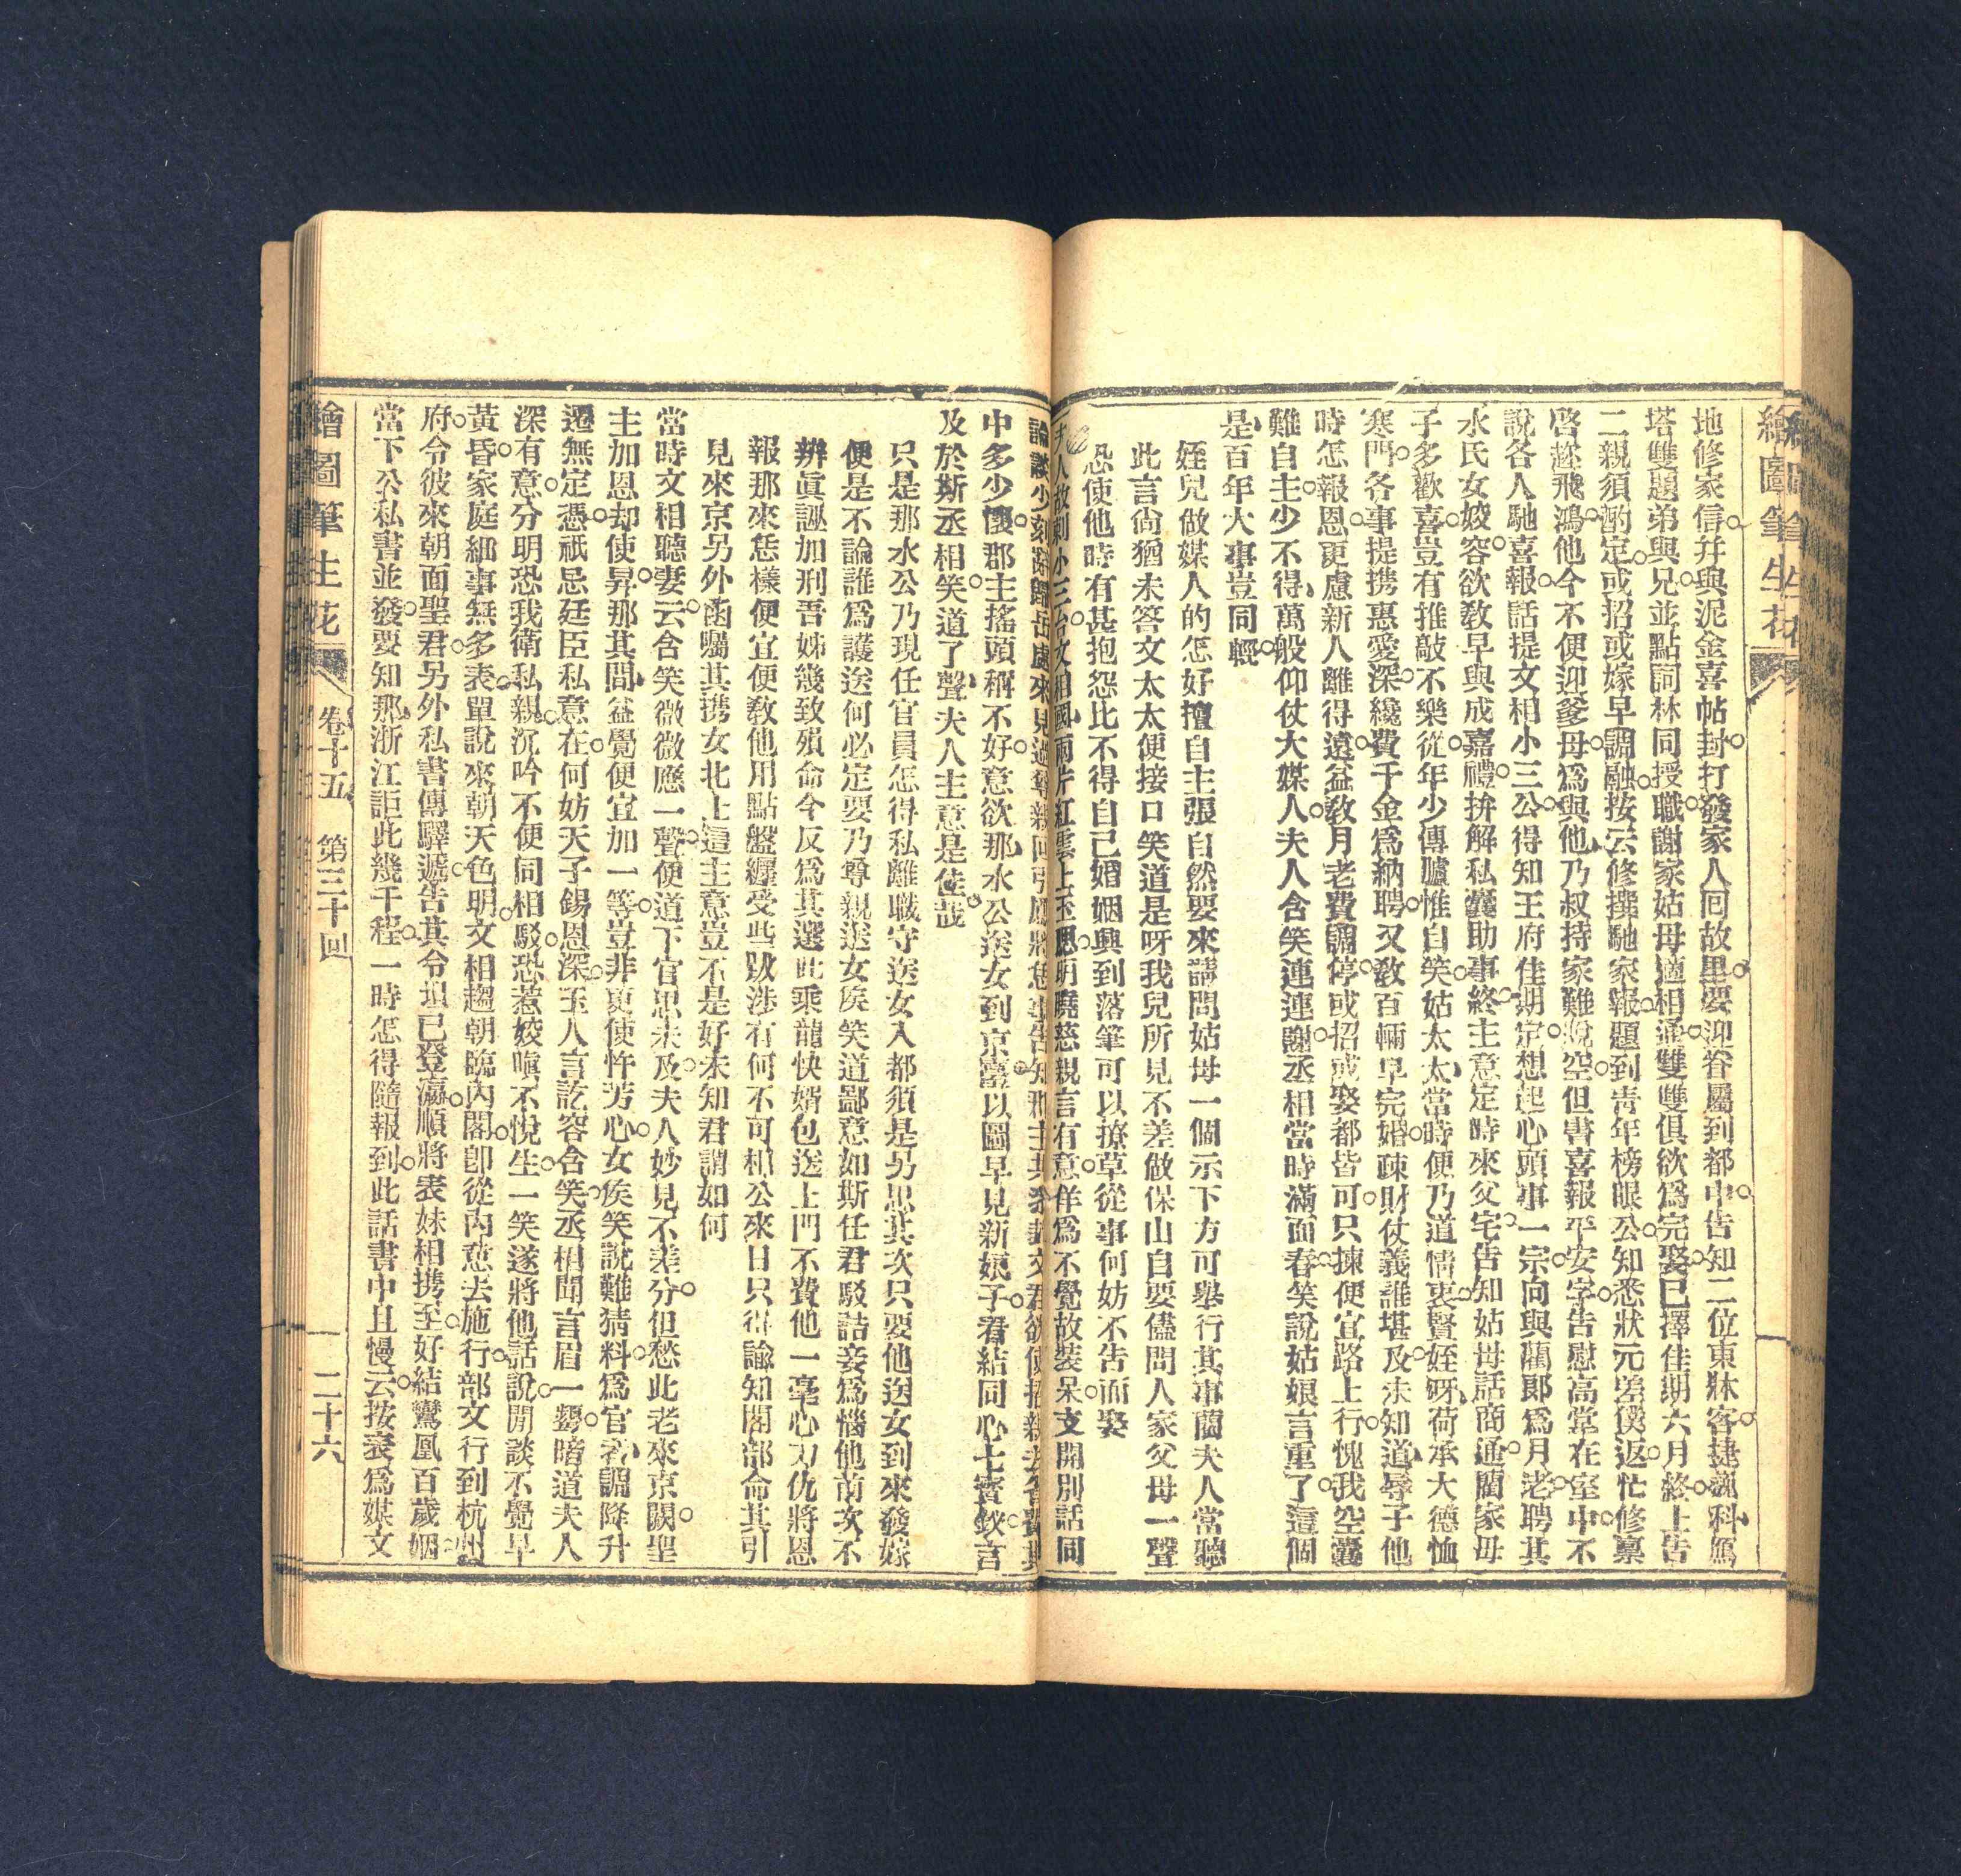 繪圖筆生花
地修家信并與泥金喜帖封打發家人回故里要迎眷屬到都中告知二位東牀客捷報科
塔雙題弟與兄並點詞林同授職謝家姑母適相通雙雙俱欲爲完娶已擇佳期六月終上告
二親須酌定或招或嫁早調融按云修撰馳家報題到靑年榜眼公知悉狀元差僕返忙修稟
啓趂飛鴻他今不便迎爹母爲與他乃叔持家難脫空但書喜報平安字告慰高堂在室中不
說各人馳喜報話提文相小三公得知王府佳期定想起心頭事一宗向與藺郎爲月老聘其
水氏女姣容欲敎早與成嘉禮拚解私囊助事終主意定時來父宅告知姑母話商通藺家母
子多歡喜豈有推敲不樂從年少傳臚惟自笑姑太太當時便乃道情衷賢姪呀荷承大德恤
寒門各事提携惠愛深纔費千金爲納聘又敎百輛早完婚疎財仗義誰堪及未知道辱子他
時怎報恩更慮新人離得遠益敎月老費調停或招或娶都皆可只揀便宜路上行愧我空囊
難自主少不得萬般仰仗大媒人夫人含笑連連謝丞相當時滿面春笑說姑娘言重了這個
是百年大事豈同輕
姪兒做媒人的怎好擅自主張自然要來請問姑母一個示下方可舉行其事藺夫人當聽
此言尙猶未答文太太便接口笑道是呀我兒所見不差做保山自要儘問人家父母一聲
恐使他時有甚抱怨比不得自己婚姻興到落筆可以撩草從事何妨不告而娶
夫人故刺小三台文相國兩片紅雲上玉腮明曉慈親言有意佯爲不覺故裝呆支開別話同
論談少刻辭歸岳處來見過尊親回弓鳳將慈事告知郡主
中多少懷郡主搖頭稱不好意欲那水公送女到京臺以圖早見新娘子看結同心七寳釵言
及於斯丞相笑道了聲夫人主意是佳哉
只是那水公乃現任官員怎得私離職守送女入都須是另思其次只要他送女到來發嫁
便是不論誰爲護送何必定要乃尊親送女矦笑道鄙意如斯任君駁詰妾爲惱他前次不
辨眞誣加刑吾姊幾致殞命今反爲其選此乘龍快婿包送上門不費他一毫心力仇將恩
報那來恁樣便宜便敎他用點盤纏受些跋涉有何不可相公來日只得諭知閣部命其引
見來京另外函囑其携女北上這主意豈不是好未知君謂如何
當時文相聽妻云含笑微微應一聲便道下官思未及夫人妙見不差分但愁此老來京闕聖
主加恩却使昇那其間益覺便宜加一等豈非更使忤芳心女矦笑說難猜料爲官者謫降升
遷無定憑祇忌廷臣私意在何妨天子錫恩深玉人言訖容含笑丞相聞言眉一顰暗道夫人
深有意分明恐我衛私親沉吟不便同相駁恐惹姣嗔不悅生一笑遂將他話說閒談不覺早
黃昏家庭細事無多表單說來朝天色明文相趨朝臨內閣卽從內意去施行部文行到杭州
府令彼來朝面聖君另外私書傳驛遞告其令坦已登瀛順將表妹相携至好結鸞凰百歲姻
當下公私書並發要知那浙江距此幾千程一時怎得隨報到此話書中且慢云按表爲媒文
繪圖筆生花
卷十五 第三十回
二十六